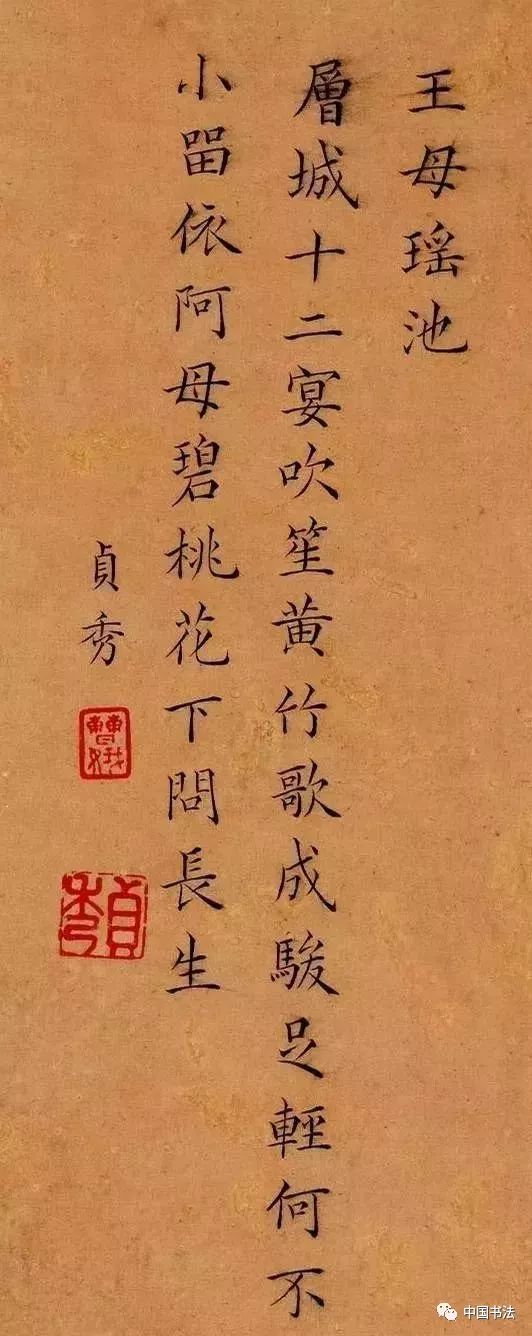 王母瑶池
層城十二宴吹笙黄竹歌成駿足輕何不
小留依阿母碧桃花下問長生
貞秀
曹娥
貞秀
中国书法